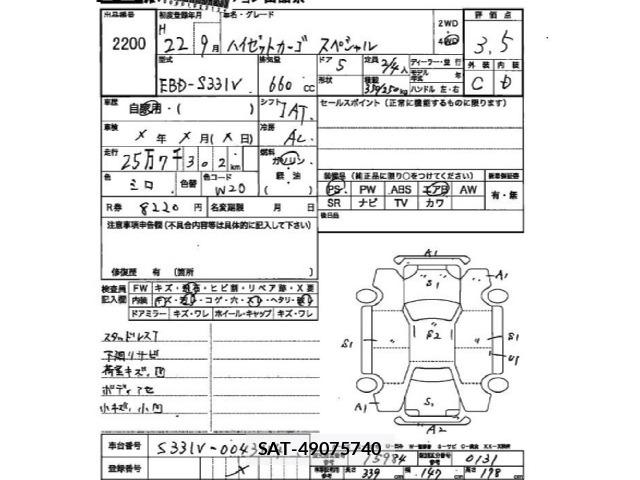 出品番号 初度登録年月 車名・グレード 2WD 評価点
2200 H 22年 9月 ハイゼットカーゴ スペシャル 4WD 3.5
型式 排気量 ドア 5 定員 2/4人 ディーラー・並行 外装 内装
EBD-S331V 660cc 形状 積載 350/250kg モデル 年 ハンドル 左・右 C D
車歴 自家用・( ) シフト IAT セールスポイント(正常に機能するものに限ります)
車検 X年 X月(X日) 冷房 AC
走行 25万7千302km 燃料 ガソリン 軽油 ( )
装備品(純正品に限り○をつけてください) 新車保証書
色 ミロ 色替 色コード W20 PS PW ABS エアB AW 有・無
R券 8220円 名変期限 月 日 SR ナビ TV カワ
注意事項申告欄(不具合内容等は具体的に記入して下さい) 後日品
修復歴 有(箇所 )
検査員記入欄 FW キズ・飛石・ヒビ割・リペア跡・X要
内装 キズ・汚レ・コゲ・穴・スレ・ヘタリ・破レ
ドアミラー キズ・ワレ ホイール・キャップ キズ・ワレ
スタッドレスT
下廻リサビ
荷室キズ、凹
ボディアセ
小キズ、小凹
A1
S1
A1
S1
S2
S1
U1
S1
A1
A1
A2
車台番号 S331V-0043
SAT-49075740
15984 0131
登録番号 X 長さ 339 幅 147 高さ 178